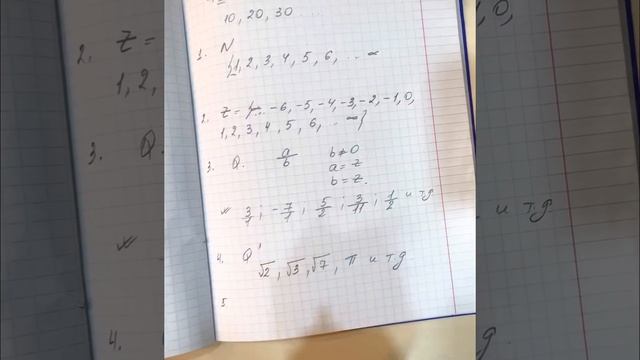 10, 20, 30 ...
1. N
{1, 2, 3, 4, 5, 6, ... ∞
2. Z = {... -6, -5, -4, -3, -2, -1, 0,
1, 2, 3, 4, 5, 6, ... ∞}
3. Q. a/b b≠0
a = Z
b = Z.
3/1 ; -7/1 ; 5/2 ; 3/11 ; 1/2 и т.д
4. Q'
√2, √3, √7, π и т.д
5